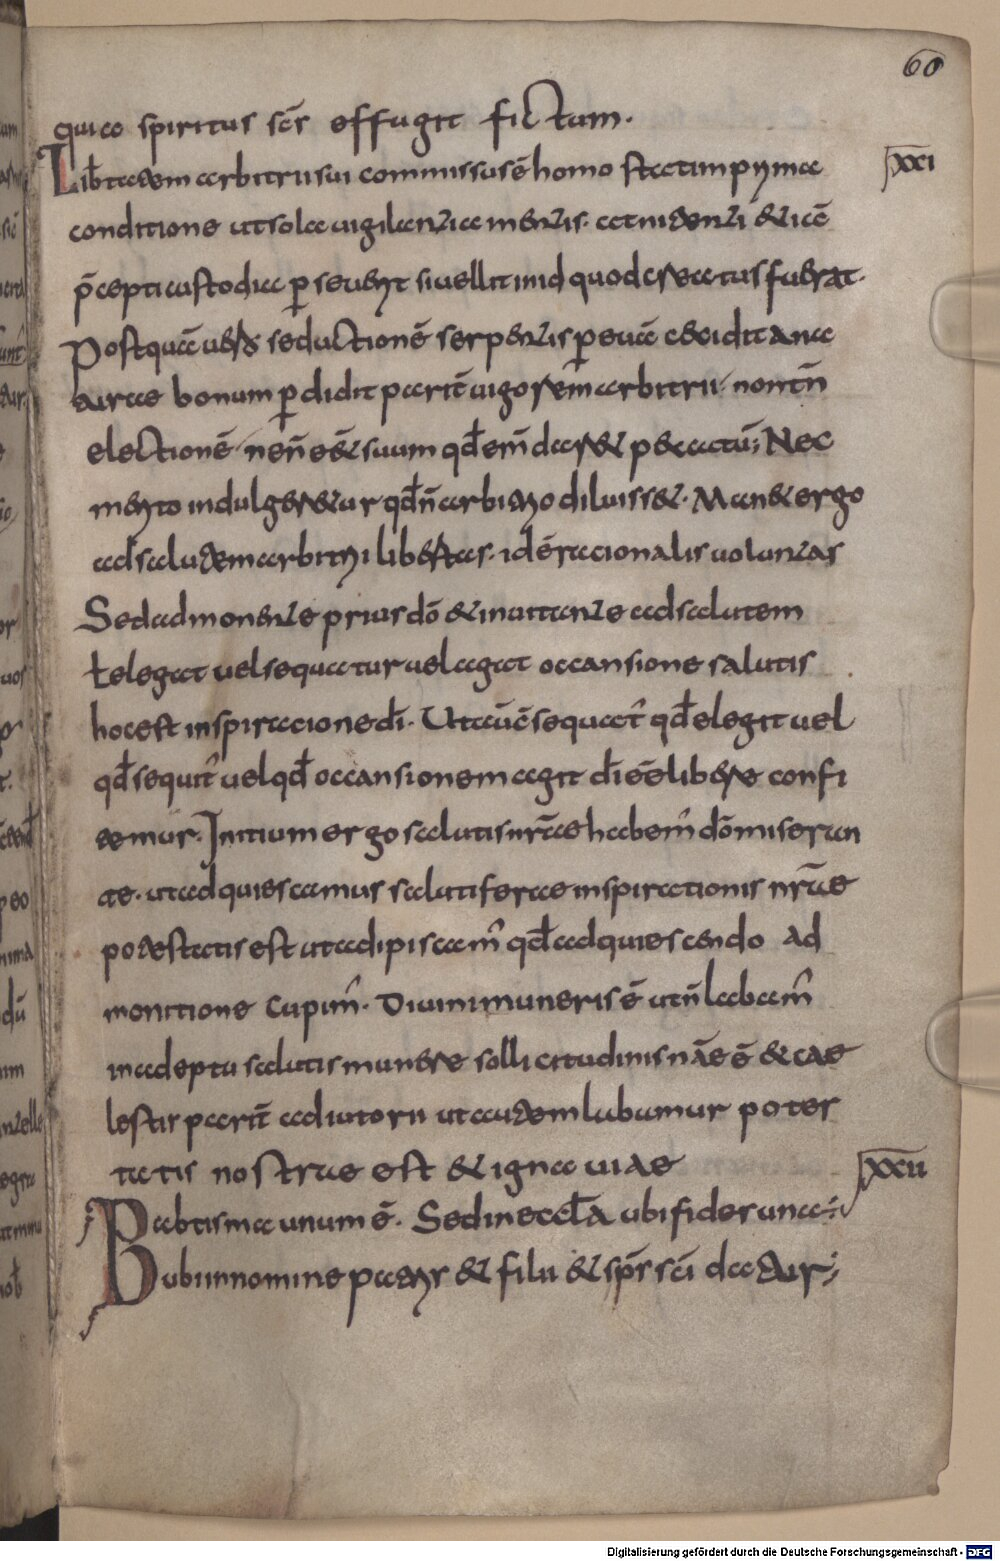 60
quia spiritus scs̄ effugit fictum·
Lib̄tadem arbitrii sui commissus ē homo statim prima xxi
conditione ut sola vigilantia mentis· adnitenti & iā
p̄cepti custodia perseveret si vellit in id quod creatus fuerat·
Postquā vero seductionē serpentis per evā cecidit a na
turae bonum perdidit pariter̄ vigorem̄ arbitrii· non tn̄
electionē· ne n̄ e&̄ suum qd̄ em̄dar& peccatū; Nec
merito indulger&ur qd̄ n̄ arbitrio diluiss&· Man& ergo
ad salutem arbitrii libertas· id ē racionalis voluntas
Sed admonente prius dō & invitante ad salutem
t elegat vel sequatur vel agat occansione salutis
hoc est inspiracione di̅· Ut auē sequat̄ qd̄ elegit vel
qd̄ sequit̄ vel qd̄ occansionem agit di̅ eē libere confi
demur· Initium ergo salutis nrāe habem̄ dō miseran
te· ut adquiescamus salutiferae inspirationis nrāe
potestatis est ut adipiscam̄ qd̄ adquiescendo ad
monitione cupim̄· Divini muneris ē ut n̄ labam̄
in adeptu salutis munere sollicitudinis nāe ē & cae
lestis parit̄ adiutorii ut autem labamur potes
tatis nostrae est & ignaviae xxii
Babtisma unum ē· Sed in eccl̄a ubi fides una
ubi in nomine patris & filii & sps̄ sci̅ datur;
Digitalisierung gefördert durch die Deutsche Forschungsgemeinschaft - DFG